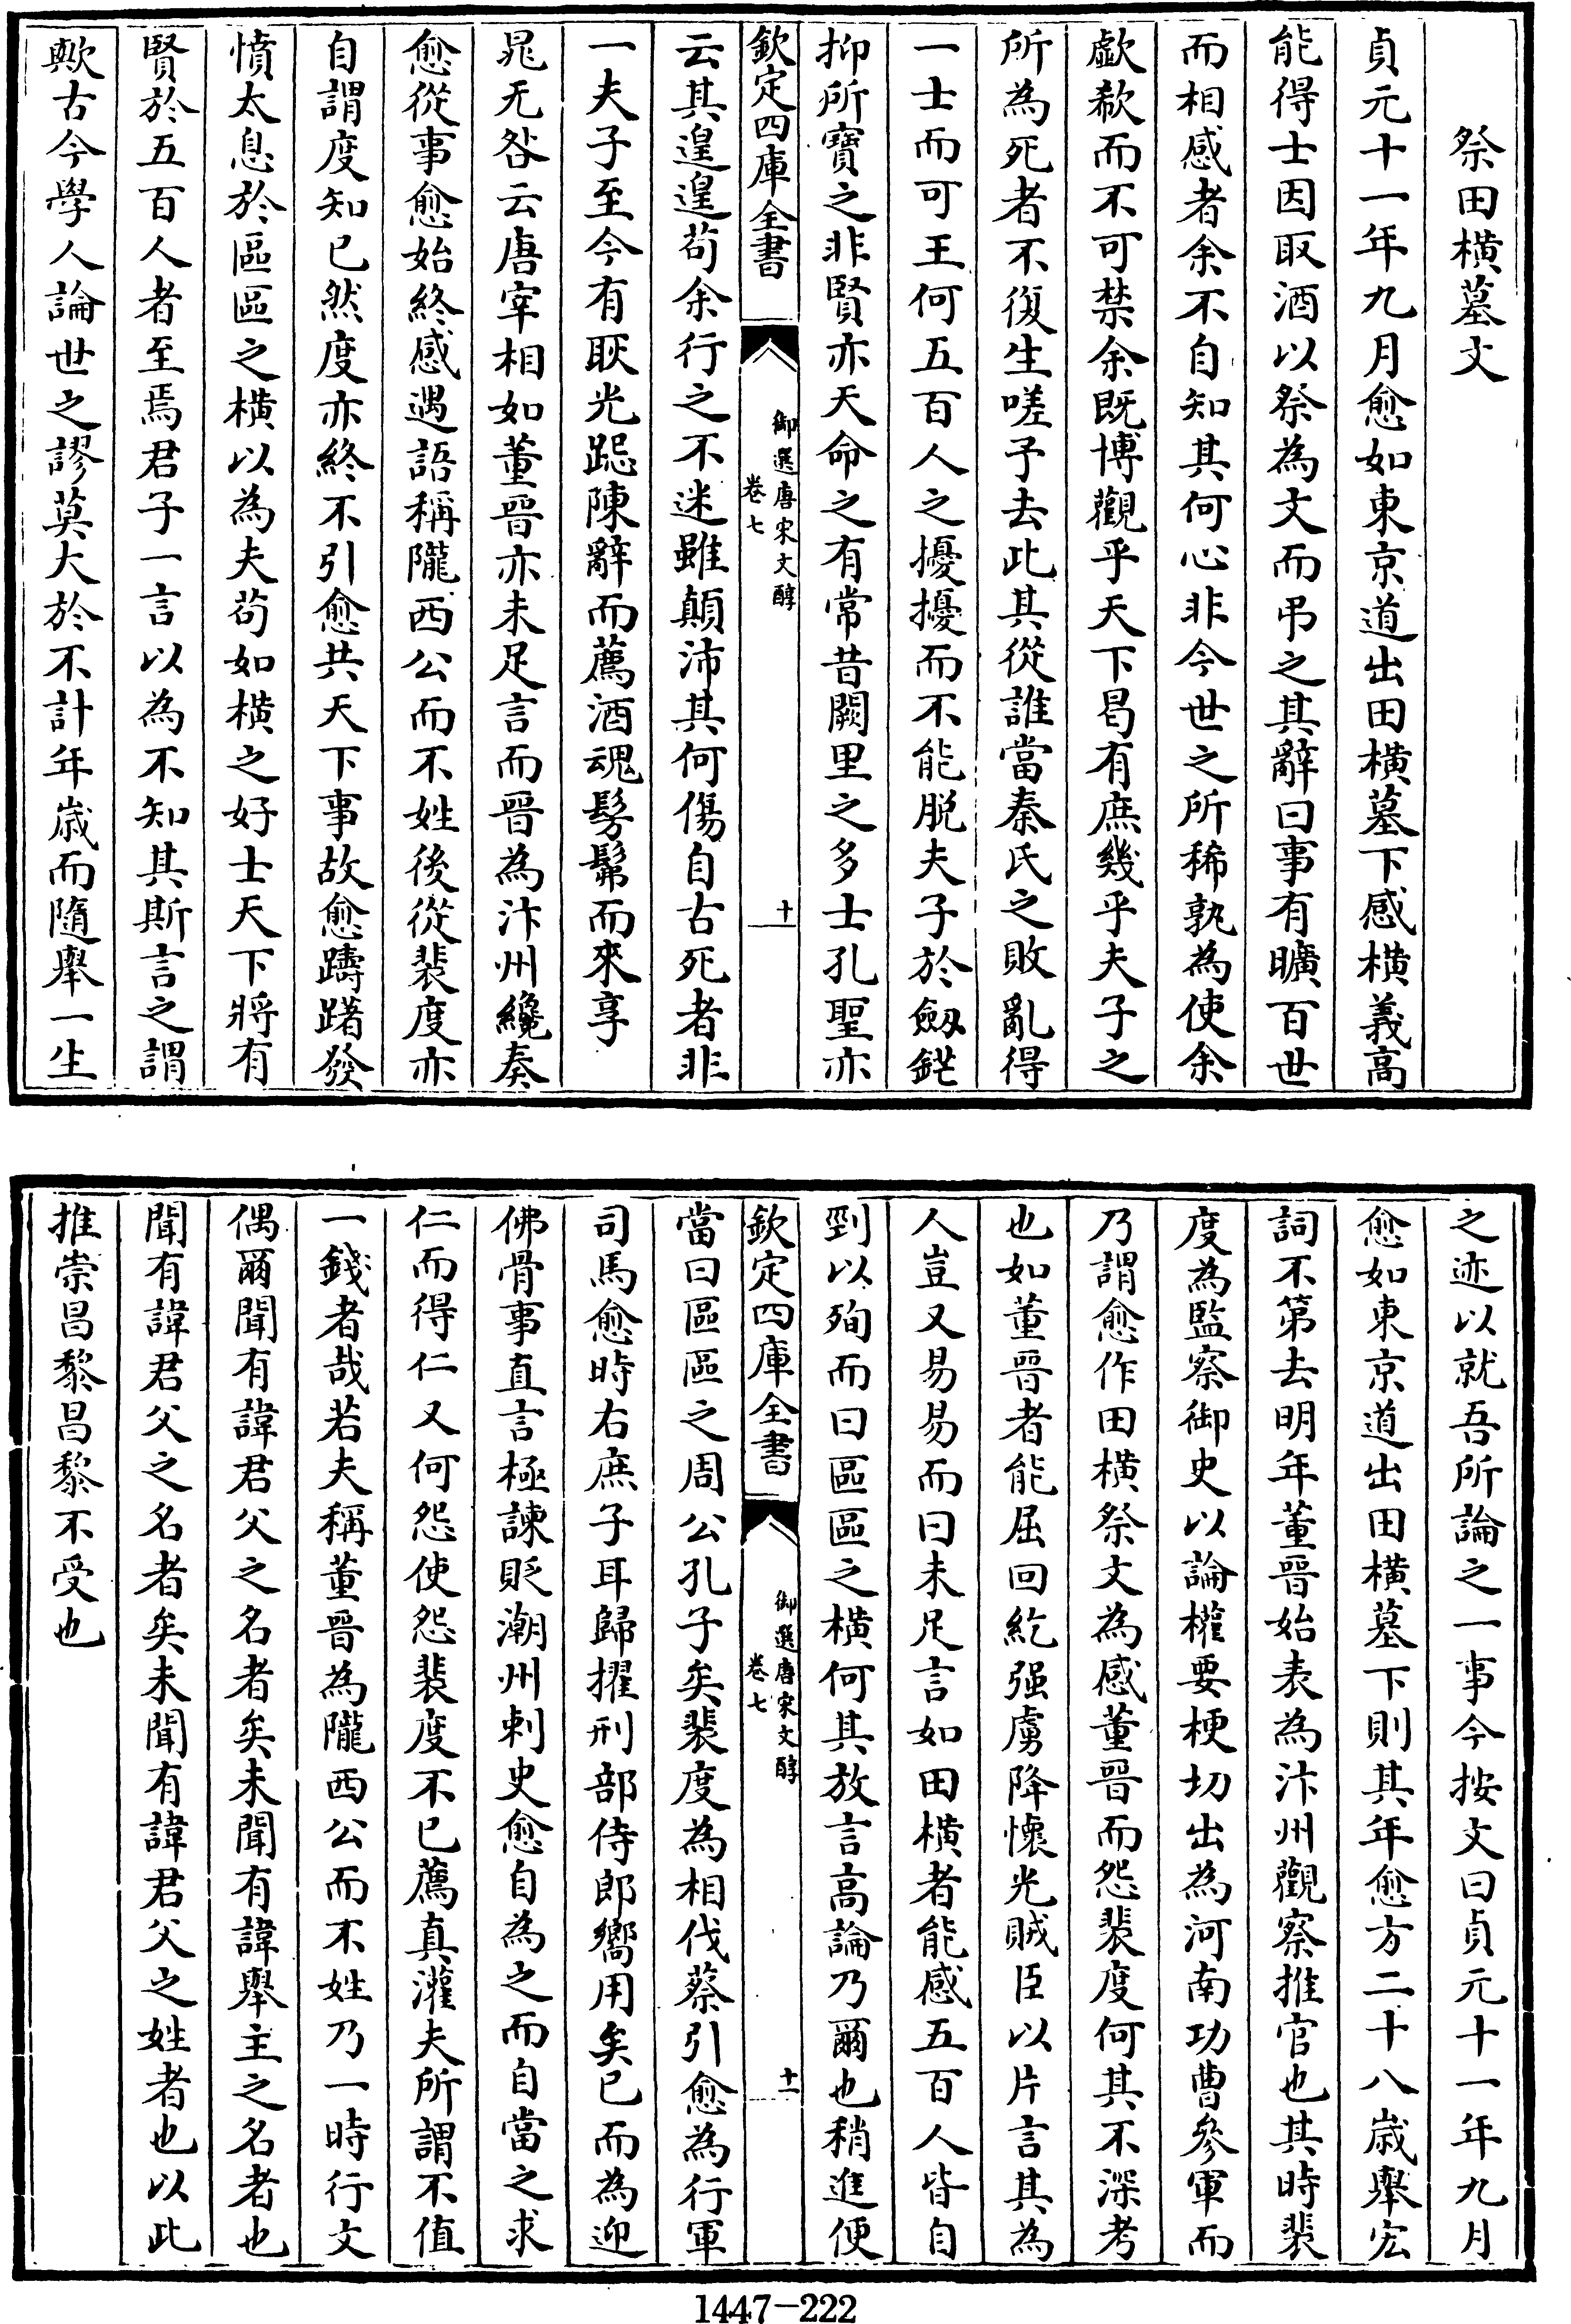 祭田橫墓文
貞元十一年九月愈如東京道出田橫墓下感橫義高
能得士因取酒以祭為文而弔之其辭曰事有曠百世
而相感者余不自知其何心非今世之所稀孰為使余
歔欷而不可禁余既博觀乎天下曷有庶幾乎夫子之
所為死者不復生嗟予去此其從誰當秦氏之敗亂得
一士而可王何五百人之擾擾而不能脫夫子於劔鋩
抑所寶之非賢亦天命之有常昔闕里之多士孔聖亦
欽定四庫全書
御選唐宋文醇
卷七
十
云其遑遑苟余行之不迷雖顛沛其何傷自古死者非
一夫子至今有耿光跽陳辭而薦酒魂髣髴而來享
晁无咎云唐宰相如董晉亦未足言而晉為汴州纔奏
愈從事愈始終感遇語稱隴西公而不姓後從裴度亦
自謂度知已然度亦終不引愈共天下事故愈躊躇發
憤太息於區區之橫以為夫苟如橫之好士天下將有
賢於五百人者至焉君子一言以為不知其斯言之謂
歟古今學人論世之謬莫大於不計年歲而隨舉一生
之迹以就吾所論之一事今按文曰貞元十一年九月
愈如東京道出田橫墓下則其年愈方二十八歲舉宏
詞不第去明年董晉始表為汴州觀察推官也其時裴
度為監察御史以論權要梗切出為河南功曹參軍而
乃謂愈作田橫祭文為感董晉而怨裴度何其不深考
也如董晉者能屈回紇强虜降懷光賊臣以片言其為
人豈又易易而曰未足言如田橫者能感五百人皆自
剄以殉而曰區區之橫何其放言高論乃爾也稍進便
欽定四庫全書
御選唐宋文醇
卷七
十一
當曰區區之周公孔子矣裴度為相伐蔡引愈為行軍
司馬愈時右庶子耳歸擢刑部侍郎嚮用矣已而為迎
佛骨事直言極諫貶潮州刺史愈自為之而自當之求
仁而得仁又何怨使怨裴度不已薦真灌夫所謂不值
一錢者哉若夫稱董晉為隴西公而不姓乃一時行文
偶爾聞有諱君父之名者矣未聞有諱舉主之名者也
聞有諱君父之名者矣未聞有諱君父之姓者也以此
推崇昌黎昌黎不受也
1447-222